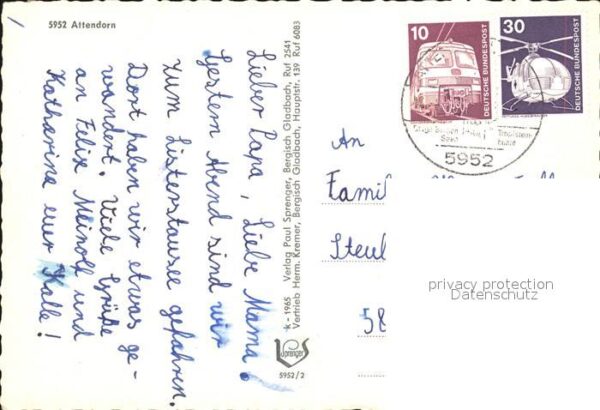 5952 Attendorn
Lieber Papa, Liebe Mama!
Gestern Abend sind wir
zum Listerstausee gefahren.
Dort haben wir etwas ge-
wandert. Viele Grüße
an Felix Meinolf und
Katharina euer Kalle!
K - 1965 Verlag Paul Sprenger, Bergisch Gladbach, Ruf 2541
Vertrieb Herm. Kremer, Bergisch Gladbach, Hauptstr. 139 Ruf 6083
Sprenger
5952/2
10
DEUTSCHE BUNDESPOST
30
DEUTSCHE BUNDESPOST
5952
An
Famil
Steub
58
privacy protection
Datenschutz